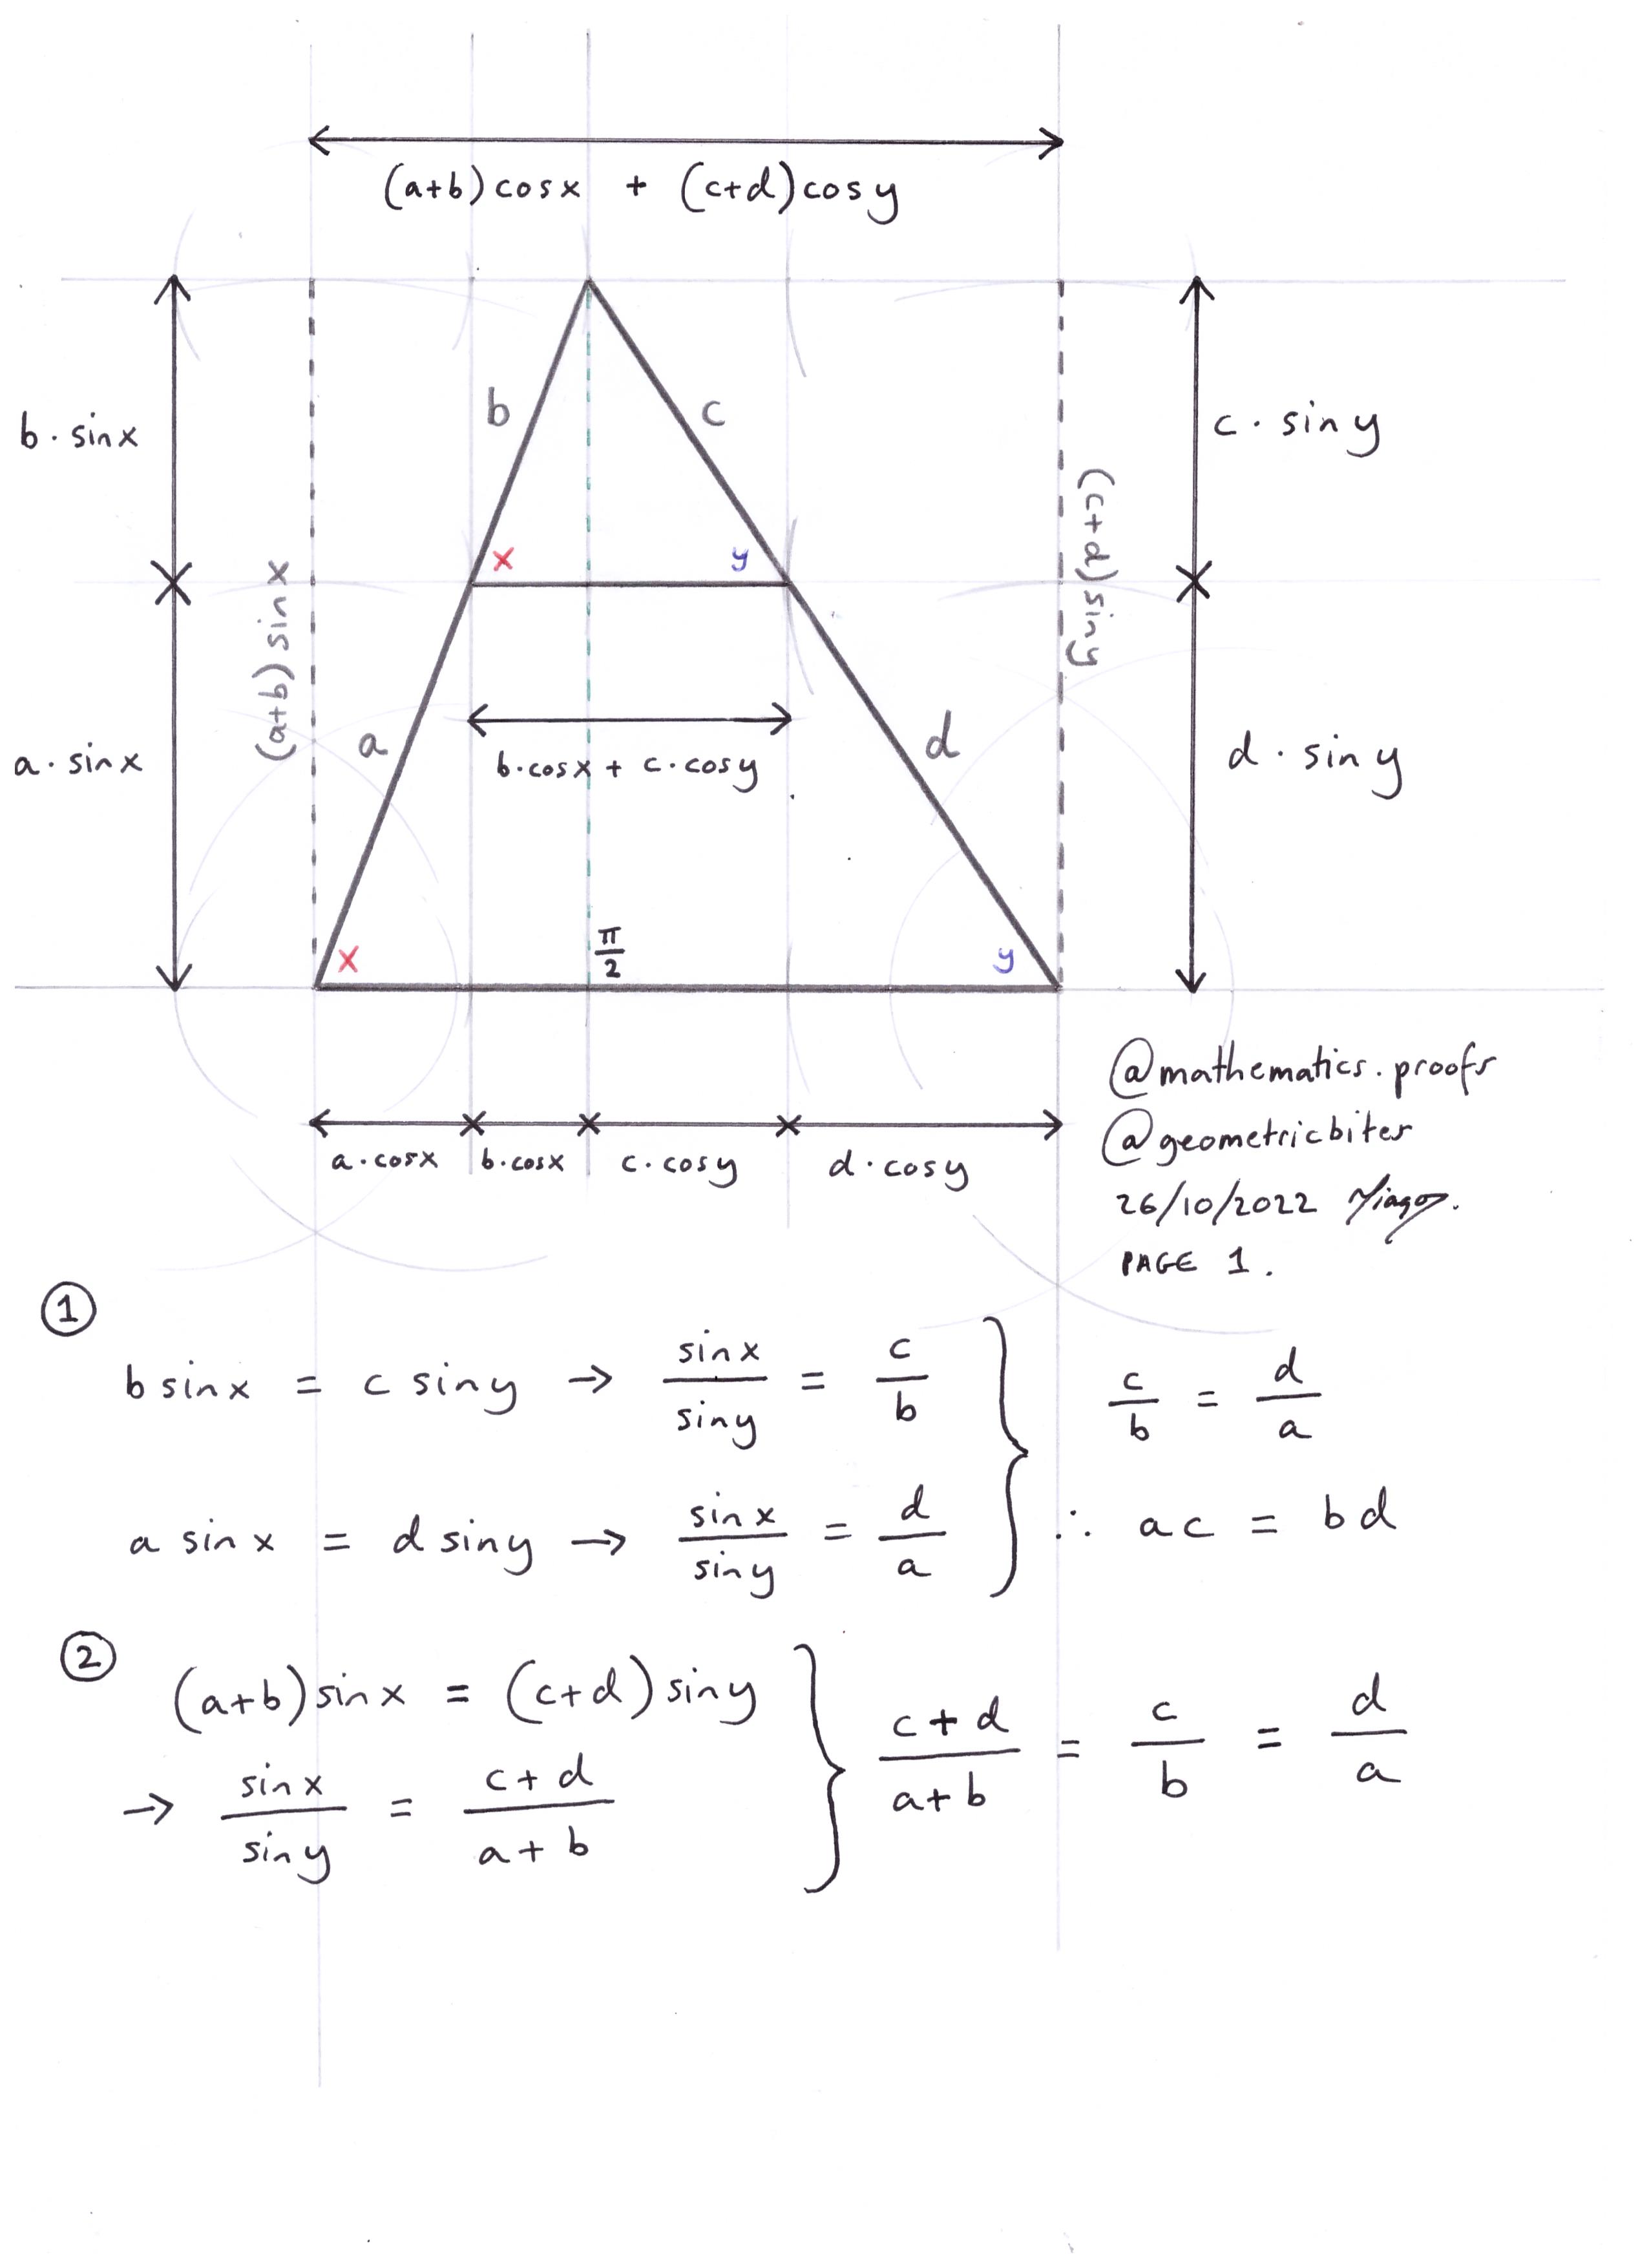 (a+b)cosx + (c+d)cosy
b · sinx
b
c
c · siny
x
y
(a+b) sinx
(c+d)siny
a · sinx
a
b·cosx + c·cosy
d
d · siny
x
π/2
y
a·cosx
b·cosx
c·cosy
d·cosy
@mathematics.proofs
@geometricbites
26/10/2022
PAGE 1.
①
b sinx = c siny → sinx/siny = c/b
c/b = d/a
a sinx = d siny → sinx/siny = d/a
∴ ac = bd
②
(a+b)sinx = (c+d)siny
→ sinx/siny = c+d/a+b
c+d/a+b = c/b = d/a